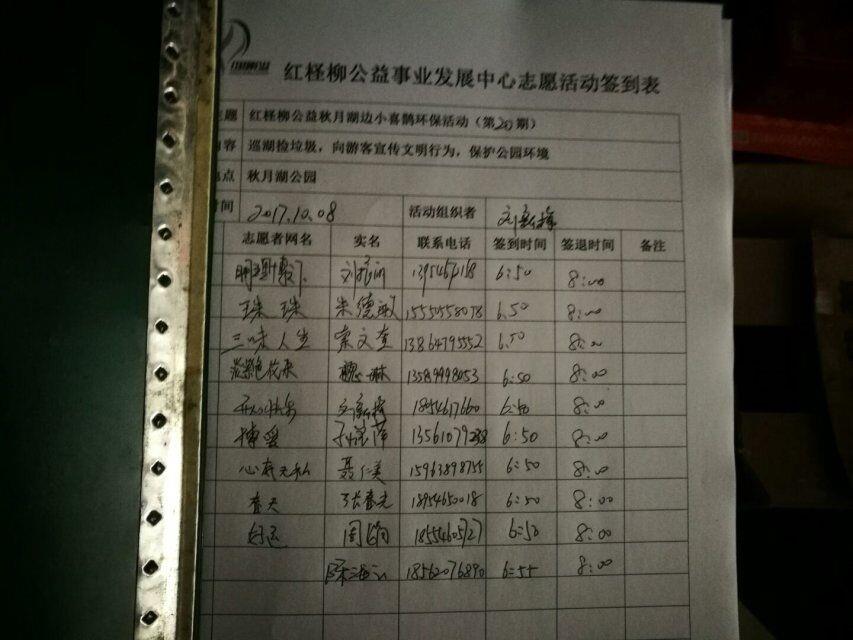 红柽柳公益事业发展中心志愿活动签到表
题 红柽柳公益秋月湖边小喜鹊环保活动（第20期）
内容 巡湖捡垃圾，向游客宣传文明行为，保护公园环境
地点 秋月湖公园
时间 2017.10.08 活动组织者
志愿者网名 实名 联系电话 签到时间 签退时间 备注
6:50 8:00
珠珠 朱德 15550558078 6.50 8:00
三味人生 索文奎 13864795552 6.50 8:00
魏琳 13589998053 6:50 8:00
18954617660 8:00
博爱 13561079238 6:50 8:00
心底无私 聂仁美 15963898755 6:50 8:00
春天 张春光 18954650018 6:50 8:00
好运 周 18554605727 6:50 8:00
陈海云 18562076890 6:55 8:00